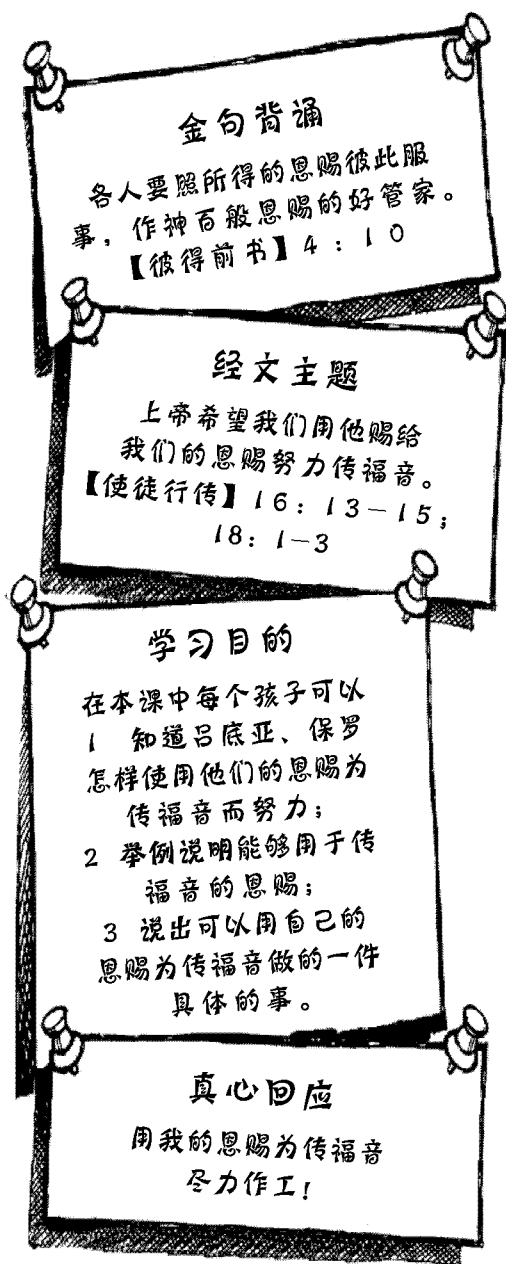 金句背诵
各人要照所得的恩赐彼此服
事，作神百般恩赐的好管家。
【彼得前书】4：10
经文主题
上帝希望我们用他赐给
我们的恩赐努力传福音。
【使徒行传】16：13－15；
18：1－3
学习目的
在本课中每个孩子可以
1 知道吕底亚、保罗
怎样使用他们的恩赐为
传福音而努力；
2 举例说明能够用于传
福音的恩赐；
3 说出可以用自己的
恩赐为传福音做的一件
具体的事。
真心回应
用我的恩赐为传福音
尽力作工！